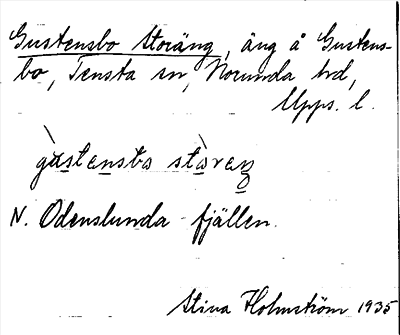 Gustensbo Storäng, äng å Gustens-
bo, Tensta sn, Norunda hd,
Upps. l.
gùstensbo stòreŋ
N. Odenslunda-fjällen.
Stina Holmström 1935